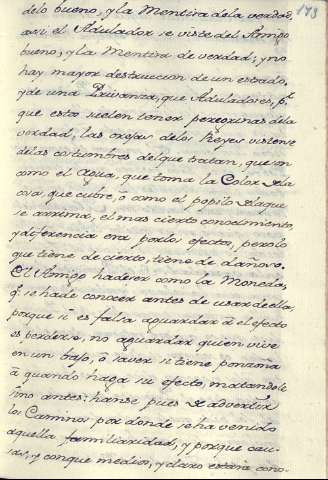 173
delo bueno, y la Mentira dela verdad,
assi el Adulador se viste del Amigo
bueno, y la Mentira de verdad; y no
hay mayor destruccion de un estado,
y de una Privanza, que Aduladores, pr.
que estos suelen tener peregrinas dela
verdad, las orejas delos Reyes vistense
delas costumbres delque tratan, que son
como el Agua, que toma la Color dela
cosa que cubre, o como el
se arrima, el mas cierto conocimiento,
y diferencia era por los efectos, pero lo
que tiene de cierto, tiene de dañoso.
El Amigo hadeser como la Moneda,
q.e se hade conocer antes de usar de ella,
porque si es falsa aguardar â el efecto
es perderse, no aguardar quien vive
en un bajo, ô saver si tiene ponzoña
â quando haga su efecto, matandole
sino antes: hanse pues de advertir
los Caminos por donde se ha venido
aquella familiaridad, y porque cau-
sas, y conque medios, y claro estava cono-